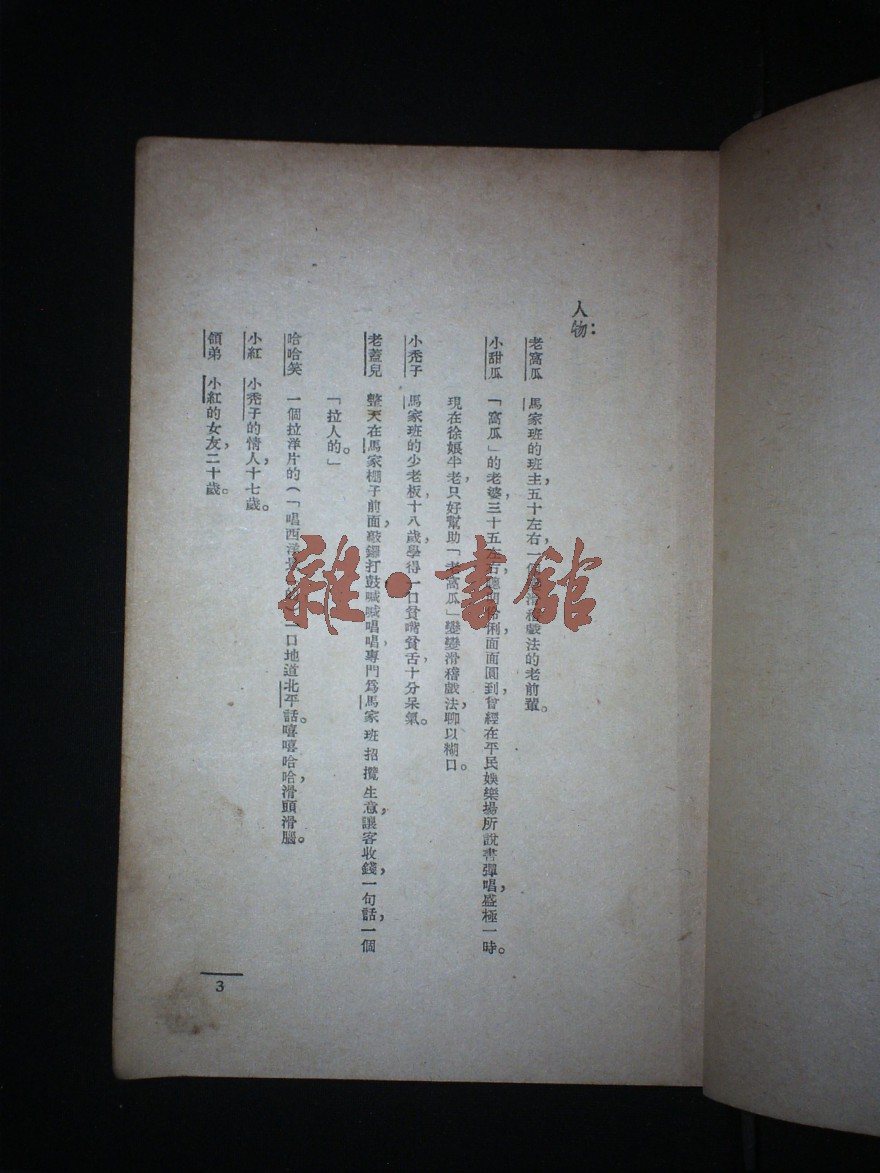 人物：
老窩瓜　馬家班的班主，五十左右，一個滑稽戲法的老前輩。
小甜瓜　「窩瓜」的老婆，三十五左右，聰明伶俐，面面圓到，曾經在平民娛樂場所說書彈唱，盛極一時。
現在徐娘半老，只好幫助「老窩瓜」變變滑稽戲法，聊以糊口。
小禿子　馬家班的少老板，十八歲，學得一口貧嘴貧舌，十分呆氣。
老蓋兒　整天在馬家棚子前面，敲鑼打鼓，喊喊唱唱，專門爲馬家班招攬生意，讓客收錢，一句話，一個
「拉人的。」
哈哈笑　一個拉洋片的（「唱西洋 一口地道北平話。嘻嘻哈哈，滑頭滑腦。
小紅　小禿子的情人，十七歲。
領弟　小紅的女友，二十歲。
3
雜·書館